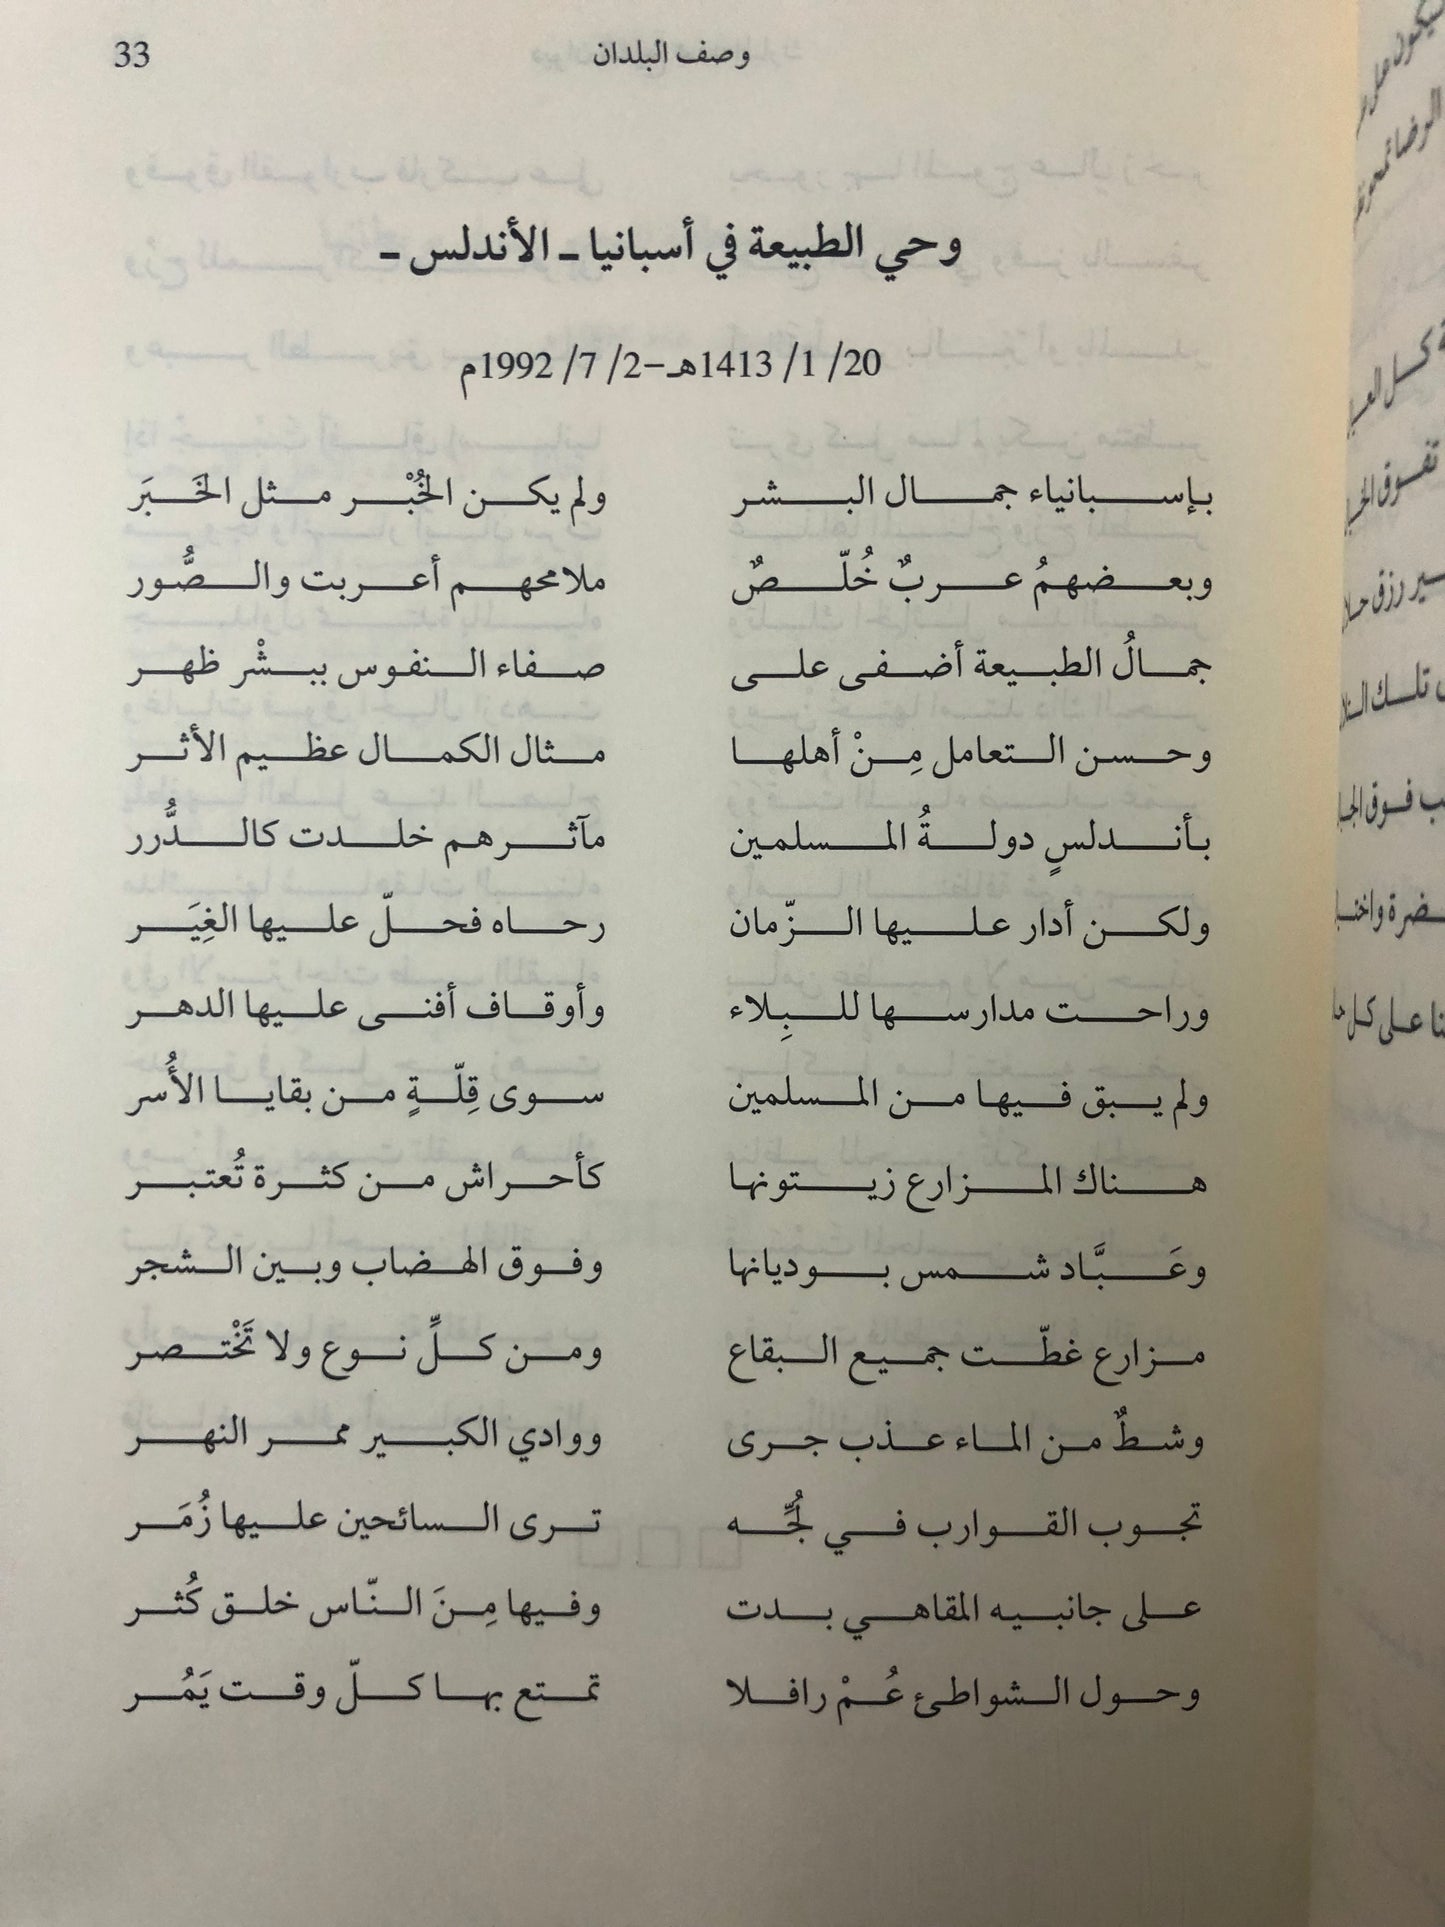 وصف البلدان 33
وحي الطبيعة في أسبانيا ـ الأندلس ـ
20/ 1/ 1413هـ–2/ 7/ 1992م
بإسبانياء جمال البشر ولم يكن الخُبْر مثل الخَبَر
وبعضهمُ عربٌ خُلّصٌ ملامحهم أعربت والصُّور
جمالُ الطبيعة أضفى على صفاء النفوس ببشْر ظهر
وحسن التعامل مِنْ أهلها مثال الكمال عظيم الأثر
بأندلسٍ دولةُ المسلمين مآثرهم خلدت كالدُّرر
ولكن أدار عليها الزّمان رحاه فحلّ عليها الغِيَر
وراحت مدارسها للبِلاء وأوقاف أفنى عليها الدهر
ولم يبق فيها من المسلمين سوى قِلّةٍ من بقايا الأُسر
هناك المزارع زيتونها كأحراش من كثرة تُعتبر
وعَبَّاد شمس بوديانها وفوق الهضاب وبين الشجر
مزارع غطّت جميع البقاع ومن كلِّ نوع ولا تَخْتصر
وشطٌ من الماء عذب جرى ووادي الكبير ممر النهر
تجوب القوارب في لُجِّه ترى السائحين عليها زُمَر
على جانبيه المقاهي بدت وفيها مِنَ النّاس خلق كُثر
وحول الشواطئ عُمْ رافلا تمتع بها كلّ وقت يَمُر